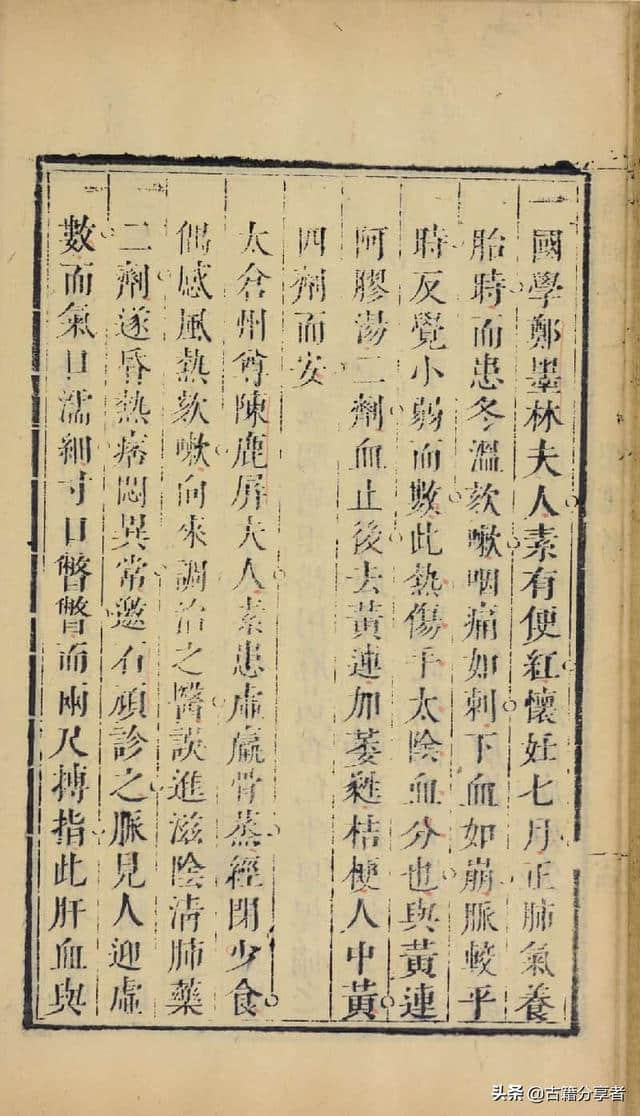 國學鄭墨林夫人素有便紅懷妊七月正肺氣養
胎時而患冬溫欬嗽咽痛如刺下血如崩脈較平
時反覺小弱而數此熱傷手太陰血分也與黃連
阿膠湯二劑血止後去黃連加葳蕤桔梗人中黃
四劑而安
太倉州尊陳鹿屏夫人素患虛羸骨蒸經閉少食
偶感風熱欬嗽向來調治之醫誤進滋陰清肺藥
二劑遂昏熱痞悶異常邀石頑診之脈見人迎虛
數而氣口濡細寸口瞥瞥而兩尺搏指此肝血與
头条 @古籍分享者